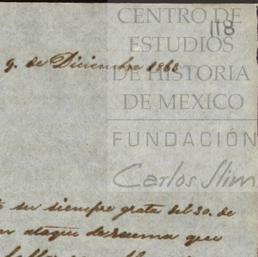 CENTRO DE
ESTUDIOS
DE HISTORIA
DE MEXICO
FUNDACIÓN
Carlos Slim
118
9. de Diciembre 186
su siempre grata del 30. de
ataque de reuma que